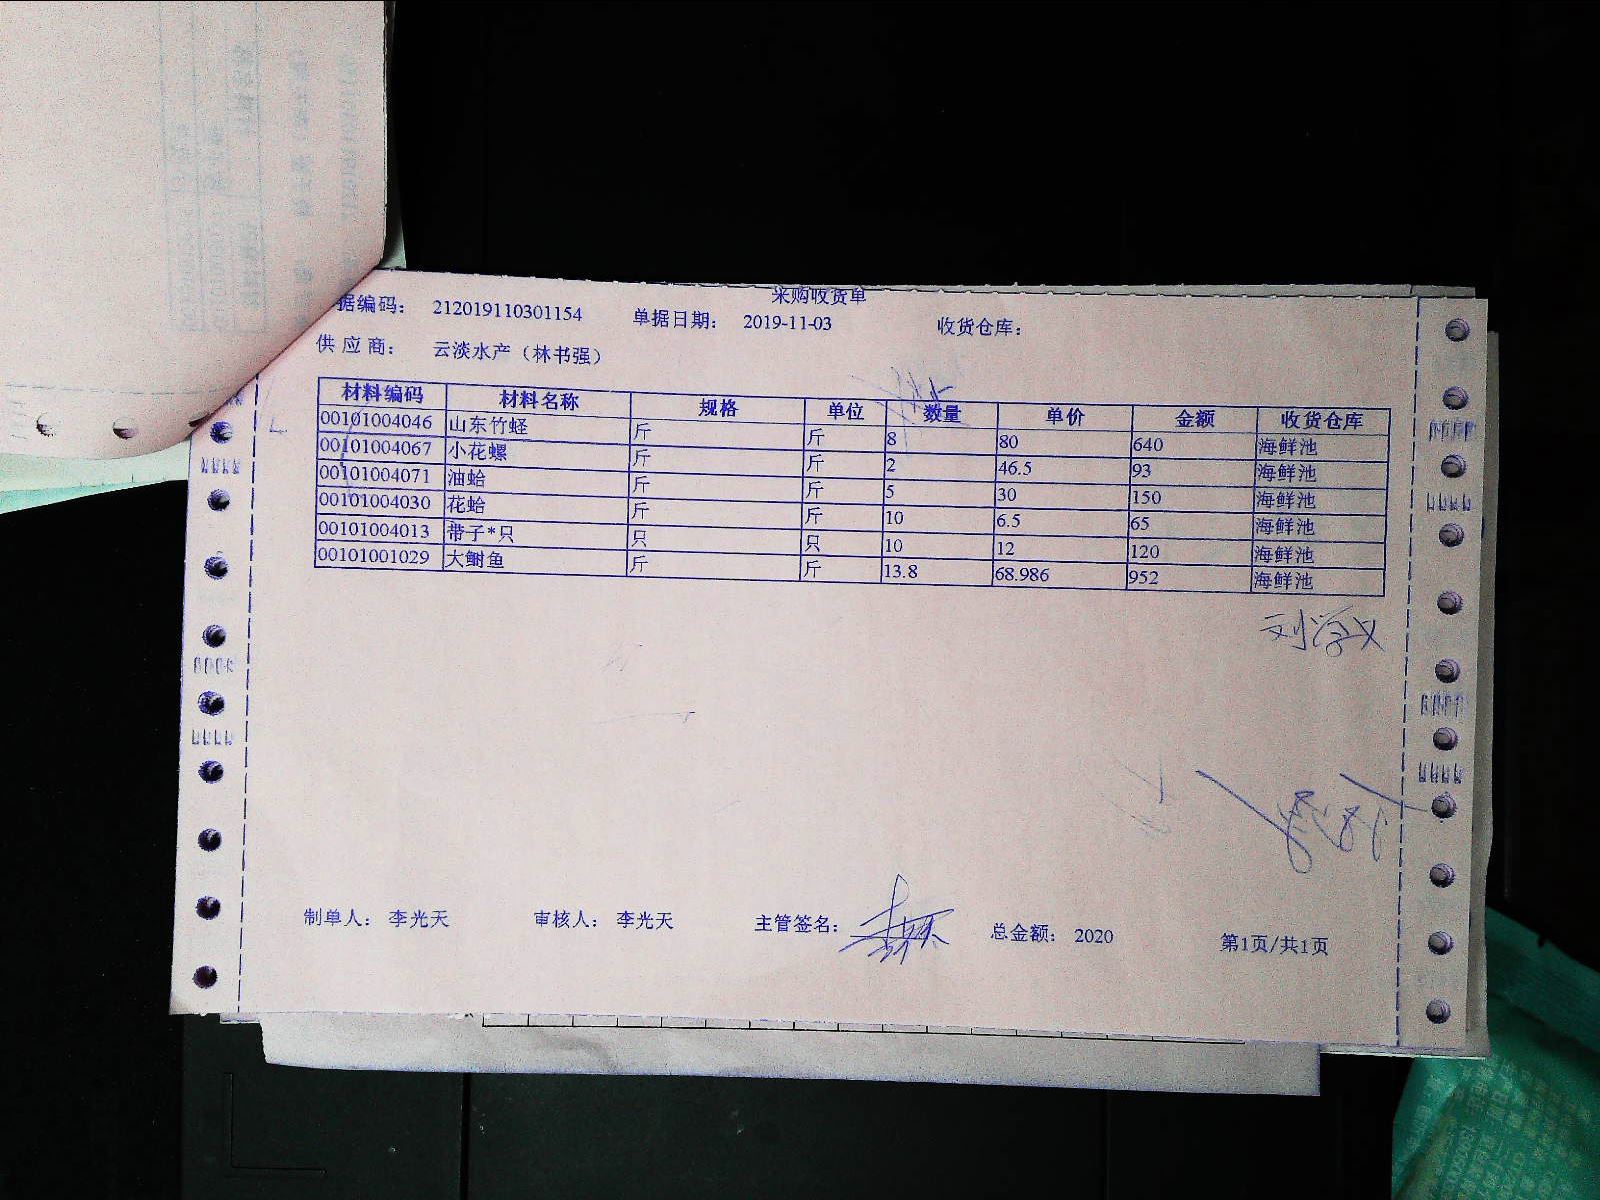 采购收货单
据编码： 212019110301154 单据日期： 2019-11-03 收货仓库：
供应商： 云淡水产（林书强）
材料编码 材料名称 规格 单位 数量 单价 金额 收货仓库
00101004046 山东竹蛏 斤 斤 8 80 640 海鲜池
00101004067 小花螺 斤 斤 2 46.5 93 海鲜池
00101004071 油蛤 斤 斤 5 30 150 海鲜池
00101004030 花蛤 斤 斤 10 6.5 65 海鲜池
00101004013 带子*只 只 只 10 12 120 海鲜池
00101001029 大鲥鱼 斤 斤 13.8 68.986 952 海鲜池
制单人： 李光天 审核人： 李光天 主管签名： 总金额： 2020 第1页/共1页